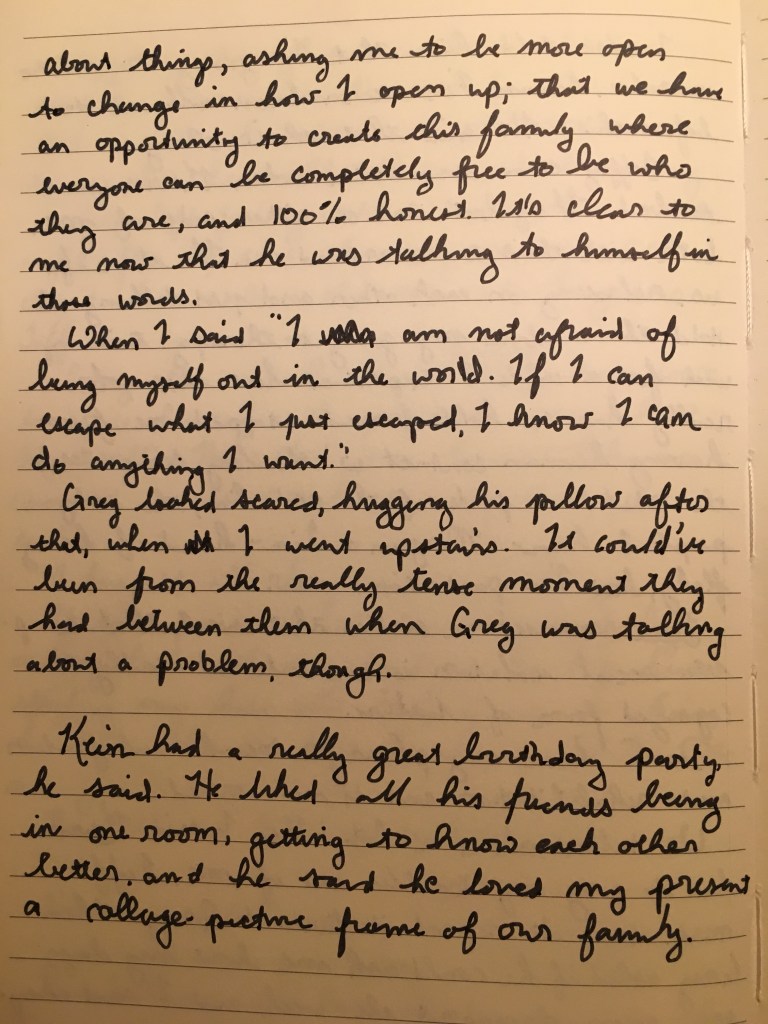 about things, asking me to be more open
to change in how I open up; that we have
an opportunity to create this family where
everyone can be completely free to be who
they are, and 100% honest. It's clear to
me now that he was talking to himself in
those words.
When I said "I am not afraid of
being myself out in the world. If I can
escape what I just escaped, I know I can
do anything I want."
Greg looked scared, hugging his pillow after
that, when I went upstairs. It could've
been from the really tense moment they
had between them when Greg was talking
about a problem, though.
had a really great birthday party,
he said. He liked all his friends being
in one room, getting to know each other
better, and he said he loved my present
a collage picture frame of our family.